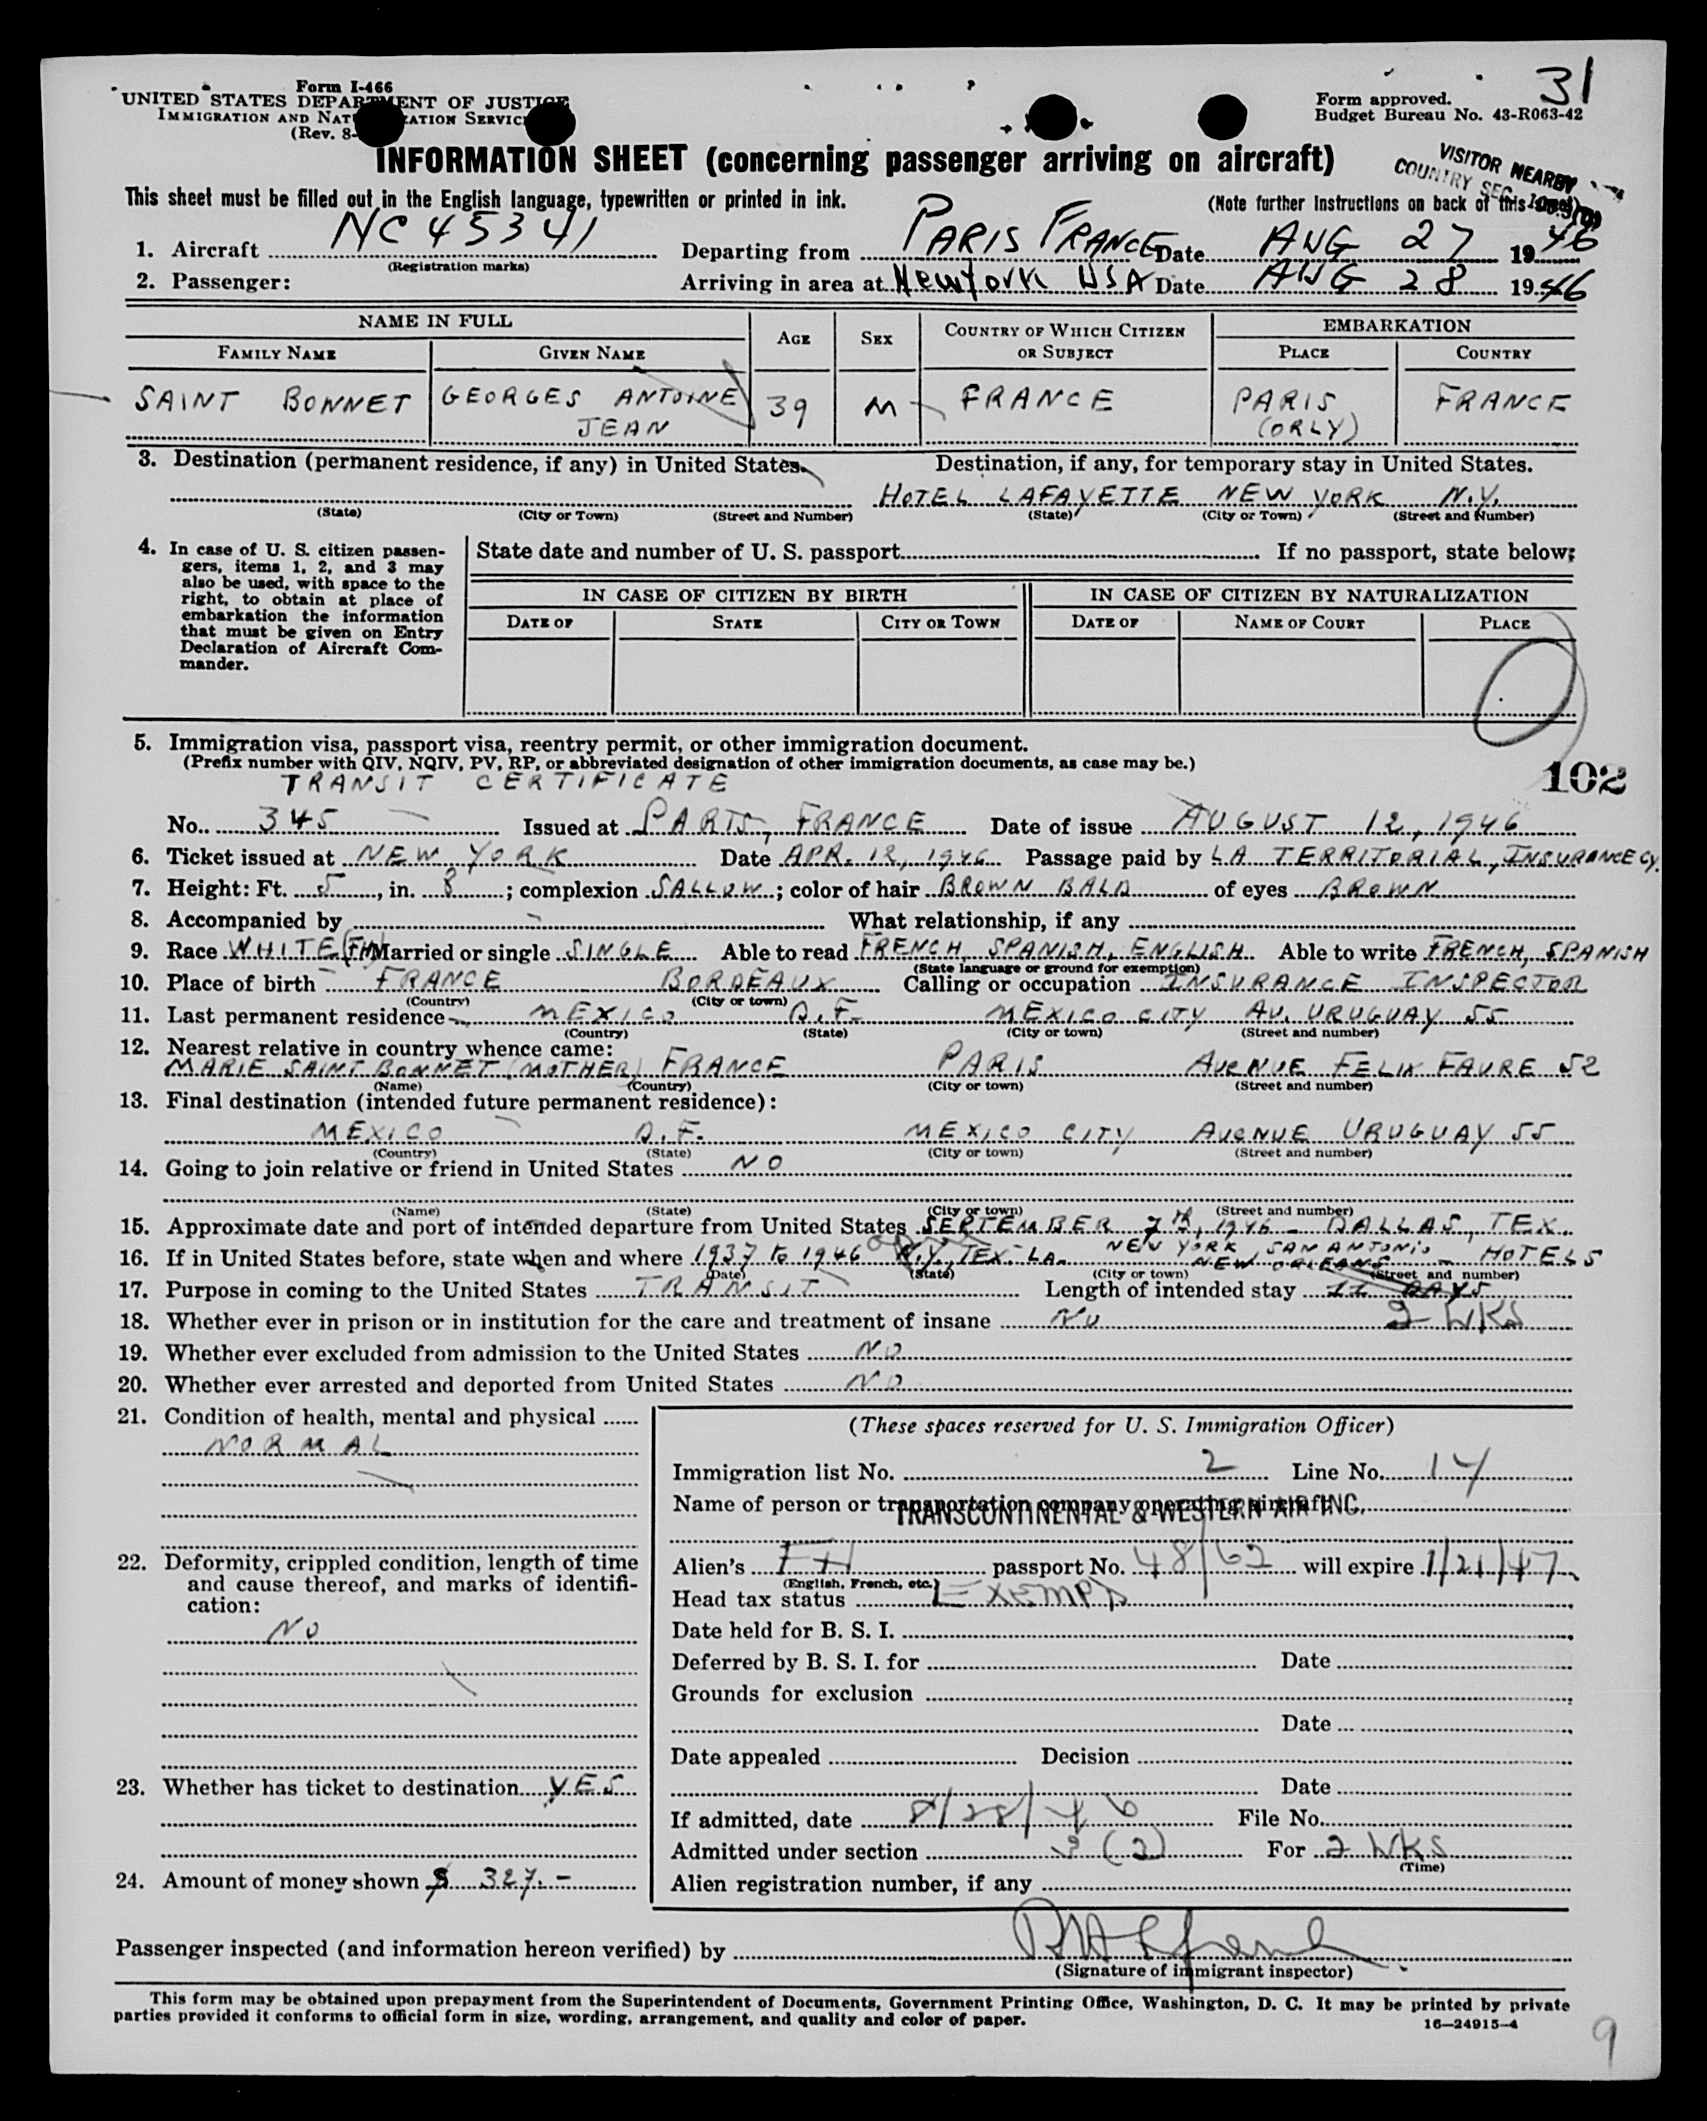 31
Form I-466
UNITED STATES DEPARTMENT OF JUSTICE
IMMIGRATION AND NATURALIZATION SERVICE
(Rev. 8-
Form approved.
Budget Bureau No. 43-R063-42
INFORMATION SHEET (concerning passenger arriving on aircraft)
VISITOR NEARBY
COUNTRY SEC.
This sheet must be filled out in the English language, typewritten or printed in ink.
(Note further instructions on back of this sheet)
1. Aircraft NC 45341 Departing from PARIS FRANCE Date AUG 27 1946
(Registration marks)
2. Passenger: Arriving in area at New York USA Date AUG 28 1946
NAME IN FULL AGE SEX COUNTRY OF WHICH CITIZEN OR SUBJECT EMBARKATION
FAMILY NAME GIVEN NAME PLACE COUNTRY
SAINT BONNET GEORGES ANTOINE 39 M FRANCE PARIS FRANCE
JEAN (ORLY)
3. Destination (permanent residence, if any) in United States. Destination, if any, for temporary stay in United States.
HOTEL LAFAYETTE NEW YORK N.Y.
(State) (City or Town) (Street and Number) (State) (City or Town) (Street and Number)
4. In case of U. S. citizen passen-
gers, items 1, 2, and 3 may
also be used, with space to the
right, to obtain at place of
embarkation the information
that must be given on Entry
Declaration of Aircraft Com-
mander.
State date and number of U. S. passport If no passport, state below:
IN CASE OF CITIZEN BY BIRTH IN CASE OF CITIZEN BY NATURALIZATION
DATE OF STATE CITY OR TOWN DATE OF NAME OF COURT PLACE
5. Immigration visa, passport visa, reentry permit, or other immigration document.
(Prefix number with QIV, NQIV, PV, RP, or abbreviated designation of other immigration documents, as case may be.)
102
TRANSIT CERTIFICATE
No. 345 Issued at PARIS, FRANCE Date of issue AUGUST 12, 1946
6. Ticket issued at NEW YORK Date APR. 12, 1946 Passage paid by LA TERRITORIAL, INSURANCE Cy.
7. Height: Ft. 5, in. 8; complexion SALLOW; color of hair BROWN BALD of eyes BROWN
8. Accompanied by What relationship, if any
9. Race WHITE (FH) Married or single SINGLE Able to read FRENCH, SPANISH, ENGLISH Able to write FRENCH, SPANISH
(State language or ground for exemption)
10. Place of birth FRANCE BORDEAUX Calling or occupation INSURANCE INSPECTOR
(Country) (City or town)
11. Last permanent residence MEXICO D.F. MEXICO CITY AV. URUGUAY 55
(Country) (State) (City or town) (Street and number)
12. Nearest relative in country whence came:
MARIE SAINT BONNET (MOTHER) FRANCE PARIS AVENUE FELIX FAURE 52
(Name) (Country) (City or town) (Street and number)
13. Final destination (intended future permanent residence):
MEXICO D.F. MEXICO CITY AVENUE URUGUAY 55
(Country) (State) (City or town) (Street and number)
14. Going to join relative or friend in United States NO
(Name) (State) (City or town) (Street and number)
15. Approximate date and port of intended departure from United States SEPTEMBER 7th, 1946 - DALLAS, TEX.
16. If in United States before, state when and where 1937 to 1946 N.Y., TEX. LA. NEW YORK, SAN ANTONIO NEW ORLEANS - HOTELS
(Date) (State) (City or town) (Street and number)
17. Purpose in coming to the United States TRANSIT Length of intended stay DAYS
2 WKS
18. Whether ever in prison or in institution for the care and treatment of insane NO
19. Whether ever excluded from admission to the United States NO
20. Whether ever arrested and deported from United States NO
21. Condition of health, mental and physical
NORMAL
22. Deformity, crippled condition, length of time
and cause thereof, and marks of identifi-
cation:
NO
23. Whether has ticket to destination YES
24. Amount of money shown $ 327.-
(These spaces reserved for U. S. Immigration Officer)
Immigration list No. 2 Line No. 14
Name of person or transportation company operating aircraft
TRANSCONTINENTAL & WESTERN AIR INC.
Alien's FH passport No. 48/62 will expire 1/21/47
(English, French, etc.)
Head tax status Exempt
Date held for B. S. I.
Deferred by B. S. I. for Date
Grounds for exclusion
Date
Date appealed Decision
Date
If admitted, date 8/28/46 File No.
Admitted under section 3(3) For 2 WKS
(Time)
Alien registration number, if any
Passenger inspected (and information hereon verified) by
(Signature of immigrant inspector)
This form may be obtained upon prepayment from the Superintendent of Documents, Government Printing Office, Washington, D. C. It may be printed by private
parties provided it conforms to official form in size, wording, arrangement, and quality and color of paper.
16—24915-4
9